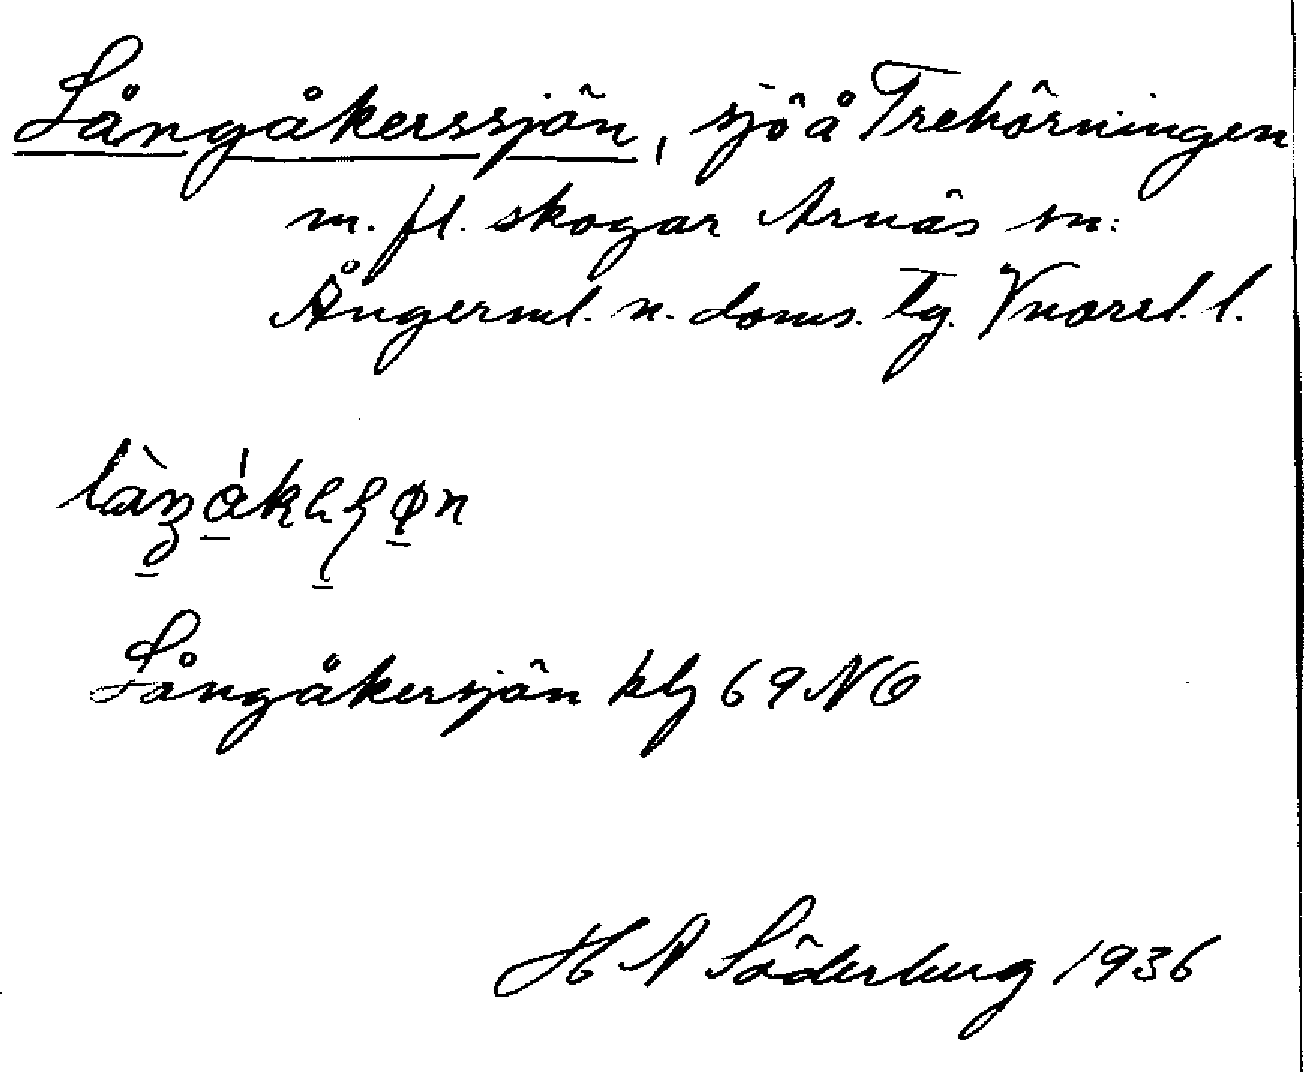 Långåkerssjön, sjö å Trehörningen
m. fl. skogar Arnäs sn:
Ångerml. n. doms. tg. Vnorrl. l.
Långåkersjön kbl 69 NO
H N Söderberg 1936